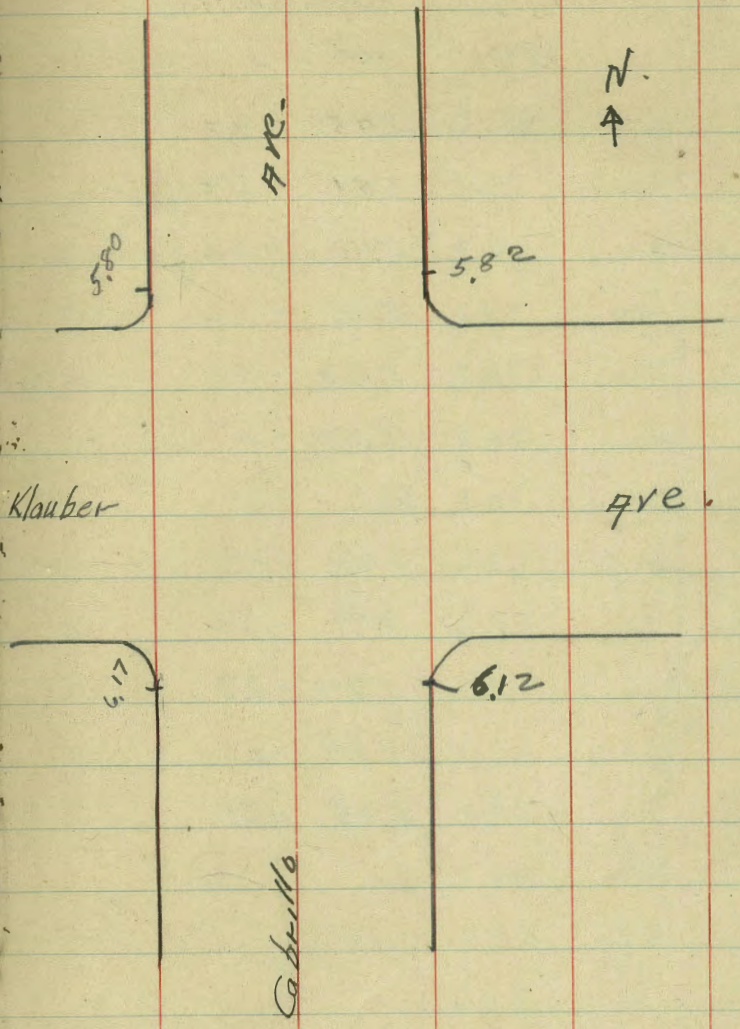 N.
Ave.
5.80
5.82
Klauber
Ave.
6.17
6.12
Cabrillo